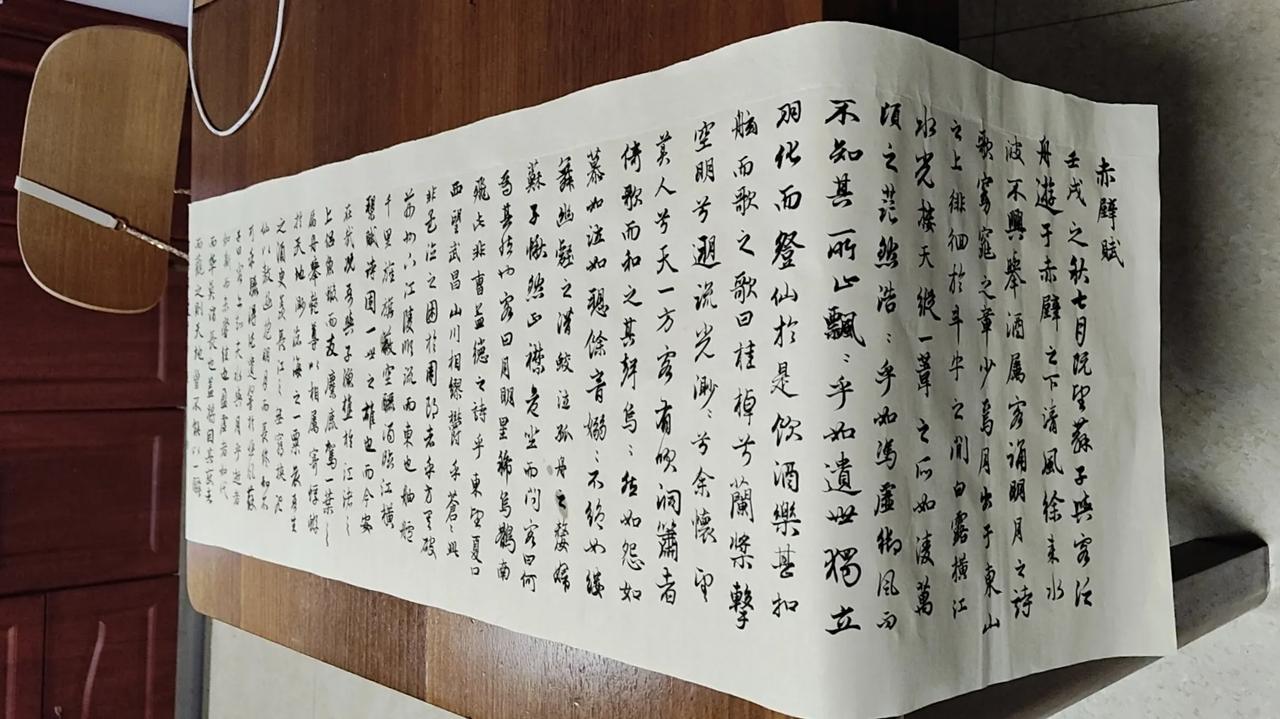 赤壁賦
壬戌之秋七月既望蘇子與客泛
舟遊于赤壁之下清風徐來水
波不興舉酒属客誦明月之詩
歌窈窕之章少焉月出于東山
之上徘徊於斗牛之間白露横江
水光接天縱一葦之所如凌萬
頃之茫然浩〻乎如馮虚御風而
不知其所止飄〻乎如遺世獨立
羽化而登仙於是飲酒樂甚扣
舷而歌之歌曰桂棹兮蘭槳擊
空明兮遡流光渺〻兮余懷望
美人兮天一方客有吹洞簫者
倚歌而和之其聲烏〻然如怨如
慕如泣如愬餘音嫋〻不絶如縷
舞幽壑之潜蛟泣孤舟之嫠婦
蘇子愀然正襟危坐而問客曰何
為其然也客曰月明星稀烏鵲南
飛此非曹孟德之詩乎東望夏口
西望武昌山川相繆欝乎蒼此
非孟德之困於周郎者乎方其破
荆州下江陵順流而東也舳艫
千里旌旗蔽空釃酒臨江横
槊賦詩固一世之雄也而今安
在哉况吾與子漁樵於江渚之
上侣魚蝦而友麋鹿駕一葉之
扁舟舉匏尊以相属寄蜉蝣
於天地渺滄海之一粟哀吾生
之須臾羡長江之無窮挟飛
仙以遨遊抱明月而長終知不
可乎驟得託遺響於悲風蘇
子曰客亦知夫水與月乎逝者
如斯而未嘗往也盈虚者如代
而卒莫消長也盖將自其變者
而觀之則天地曾不能以一瞬